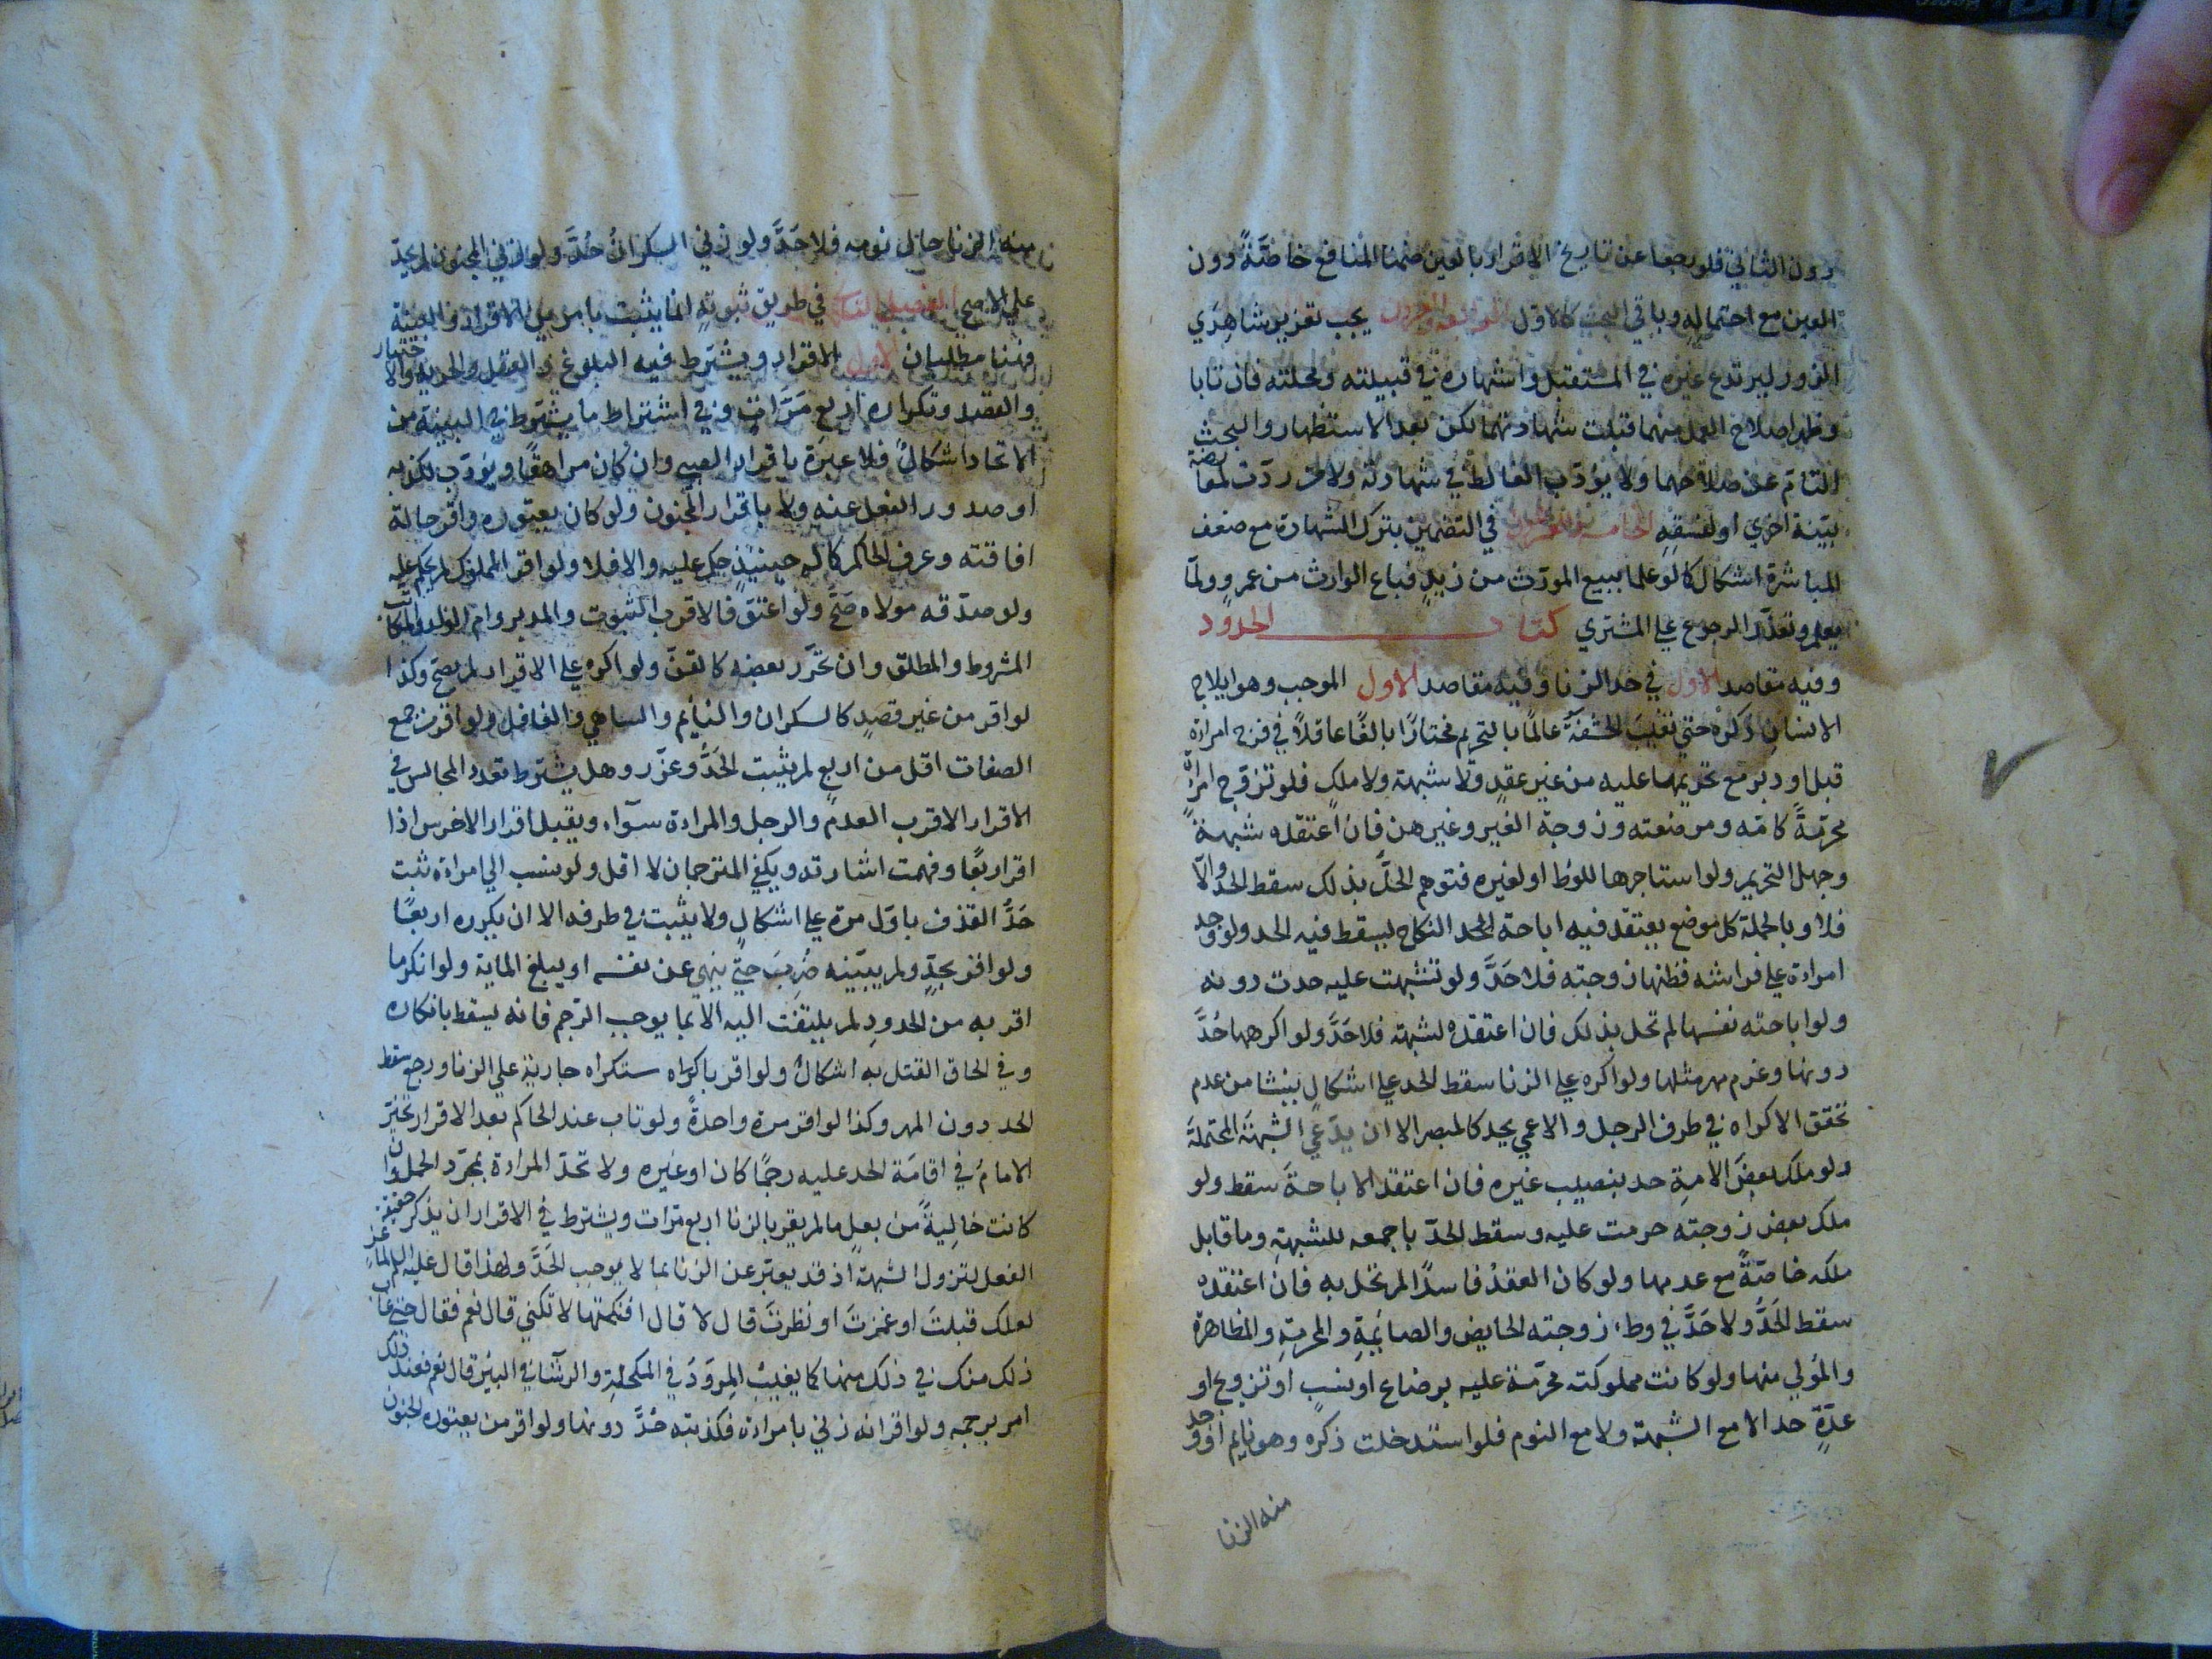 دون الثاني فلو رجعا عن تاريخ الاقرار بالعين ضمنا المنافع خاصّةً دون
العين مع احتماله وباقي البحث كالاول يجب تعزير شاهدي
الزور ليرتدع غيره في المستقبل واشتهاره في قبيلته ومحلته فان تابا
وظهر اصلاح العمل منهما قبلت شهادتهما لكن بعد الاستظهار والبحث
التام عن صلاحهما ولا يؤدّب الغالط في شهادته ولا من ردّت لمعارضة
بيّنة اخري او لفسقه في التضمين بترك الشهادة مع ضعف
المباشرة اشكال كما لو علما ببيع المورّث من زيدٍ فباع الوارث من عمرٍو ولمّا
يعلم وتعذّر الرجوع علي المشتري كتاب الحدود
وفيه مقاصد الاول في حد الزنا وفيه مقاصد الاول الموجب وهو ايلاج
الانسان ذكره حتي تغيب الحشفةُ عالمًا بالتحريم مختارًا بالغًا عاقلاً في فرج امراة
قبل او دبر مع تحريمها عليه من غير عقدٍ ولا شبهة ولا ملكٍ فلو تزوّج امراةً
محرّمةً كامّه ومرضعته وزوجة الغير وغيرهن فان اعتقده شبهة
وجهل التحريم ولو استاجرها للوطء او لغيره فتوهم الحلَّ بذلك سقط الحدّ والّا
فلا وبالجملة كل موضع يعتقد فيه اباحة النكاح يسقط فيه الحد ولو وجد
امراة علي فراشه فظنها زوجته فلا حَدَّ ولو تشبهت عليه حدت دونه
ولو اباحته نفسها لم تحل بذلك فان اعتقده لشبهة فلا حَدَّ ولو اكرهها حُدَّ
دونها وغرم مهر مثلها ولو اكره علي الزنا سقط الحد علي اشكالٍ ينشا من عدم
تحقق الاكراه في طرف الرجل والاعمي يحد كالمبصر الا ان يدّعي الشبهةَ المحتملةَ
ولو ملك بعضَ الامةِ حد بنصيب غيره فان اعتقد الاباحةَ سقط ولو
ملك بعض زوجته حرمت عليه وسقط الحدّ باجمعه للشبهةِ وما قابل
ملكه خاصّةً مع عدمها ولو كان العقدُ فاسدًا لم تحل به فان اعتقده
سقط الحَدُّ ولا حَدَّ في وطءِ زوجته الحايض والصايمةِ والمحرمةِ والمظاهرة
والمُولي منها ولو كانت مملوكته محرّمة عليه برضاع او نسبٍ او تزويج او
عدّةٍ حد الا مع الشبهة ولا مع النوم فلو استدخلت ذكره وهو نايم او وجد
منه الزنا
منه الزنا حال نومه فلا حَدَّ ولو زني السكرانُ حُدَّ ولو زني المجنون لم يحدّ
علي الاصح في طريق ثبوته انما يثبت بامرين الاقرار والبينة
وهنا مطلبان الاول الاقرار ويشترط فيه البلوغ والعقل والحرية والاختيار
والقصد وتكراره اربع مَرَّاتٍ وفي اشتراط ما يشترط في البينة من
الاتحاد اشكالٌ فلا عبرة باقرار الصبي وان كان مراهقًا ويؤدّب لكذبه
او صدور الفعل عنه ولا باقرار المجنون ولو كان يعتوره واقر حالة
افاقته وعرف الحاكم كماله حينئِذٍ حكم عليه والا فلا ولو اقر المملوك لم يحكم عليه
ولو صدّقه مولاه صَحَّ ولو اعتق فالاقرب الثبوت والمدبر وام الولد والمكاتب
المشروط والمطلق وان تحرّر بعضه كالقنّ ولو اكره علي الاقرار لم يصحّ وكذا
لو اقر من غير قصدٍ كالسكران والنايم والساهي والغافل ولو اقر من جمع
الصفات اقل من اربع لم يثبت الحَدُّ وعزّر وهل يشترط تعدد المجالس في
الاقرار الاقرب العدم والرجل والمراة سوآء ويقبل اقرار الاخرس اذا
اقر اربعًا وفهمت اشارته ويكفي المترجمان لا اقل ولو نسب الي امراة ثبت
حَدُّ القذف باوّل مرة علي اشكالٍ ولا يثبت في طرفه الا ان يكرره اربعًا
ولو اقر بحدٍّ ولم يبيّنه ضُرِبَ حتي ينهي عن نفسه او يبلغ الماية ولو انكر ما
اقر به من الحدودِ لم يلتفت اليه الا بما يوجب الرّجم فانه يسقط بانكاره
وفي الحاق القتل به اشكالٌ ولو اقر باكراه ستكراه جارية علي الزنا ورجع سقط
الحد دون المهر وكذا لو اقر مرة واحدةً ولو تاب عند الحاكم بعد الاقرار تخيّر
الامامُ في اقامَة الحد عليه رجمًا كان او غيره ولا تحدّ المراة بمجرّد الحمل وان
كانت خاليةً من بعلٍ ما لم يقر بالزنا اربع مرّات ويشترط في الاقرار ان يذكر حقيقة
الفعل لتزول الشبهة اذ قد يعبّر عن الزنا بما لا يوجب الحَدَّ ولهذا قال عليه السلم لماعز
لعلك قبلتَ او غمزتَ او نظرتَ قال لا قال افنكتها لا تكني قال نعم فقال حتي غاب
ذلك منك في ذلك منها كما يغيب المِروَدُ في المكحلة والرشآء في البير قال نعم فعند ذلك
امر برجمهِ ولو اقر انه زني بامراة فكذبته حُدَّ دونها ولو اقر من يعتوره الجنون